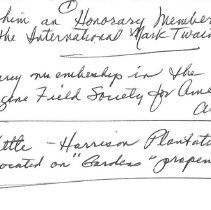 ①
him an Honorary Member
the International Mark Twain
membership in the
gene Field Society for Ame
Kettle - Harrison Plantat
ocated on "Gardens" propen